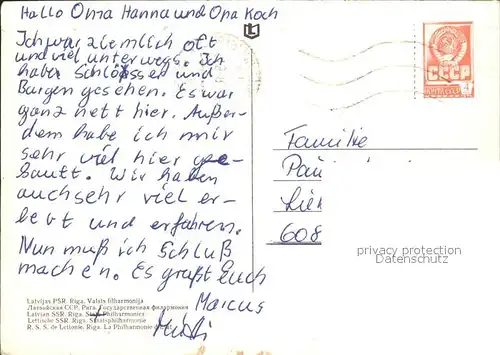 Hallo Oma Hanna und Opa Koch
Ich war ziemlich oft
und viel unterwegs. Ich
habe Schlösser und
Burgen gesehen. Es war
ganz nett hier. Außer-
dem habe ich mir
sehr viel hier ge-
kauft. Wir haben
auch sehr viel er-
lebt und erfahren.
Nun muß ich Schluß
machen. Es grüßt Euch
Marcus
CCCP
Familie
608
propulsion protection
copyright protected
Latvijas PSR. Rīga. Valsts filharmonija
Латвийская ССР. Рига. Государственная филармония
Latvian SSR. Riga. State Philharmonics
Lettische SSR. Riga. Staatsphilharmonie
R. S. S. de Lettonie. Riga. La Philharmonie